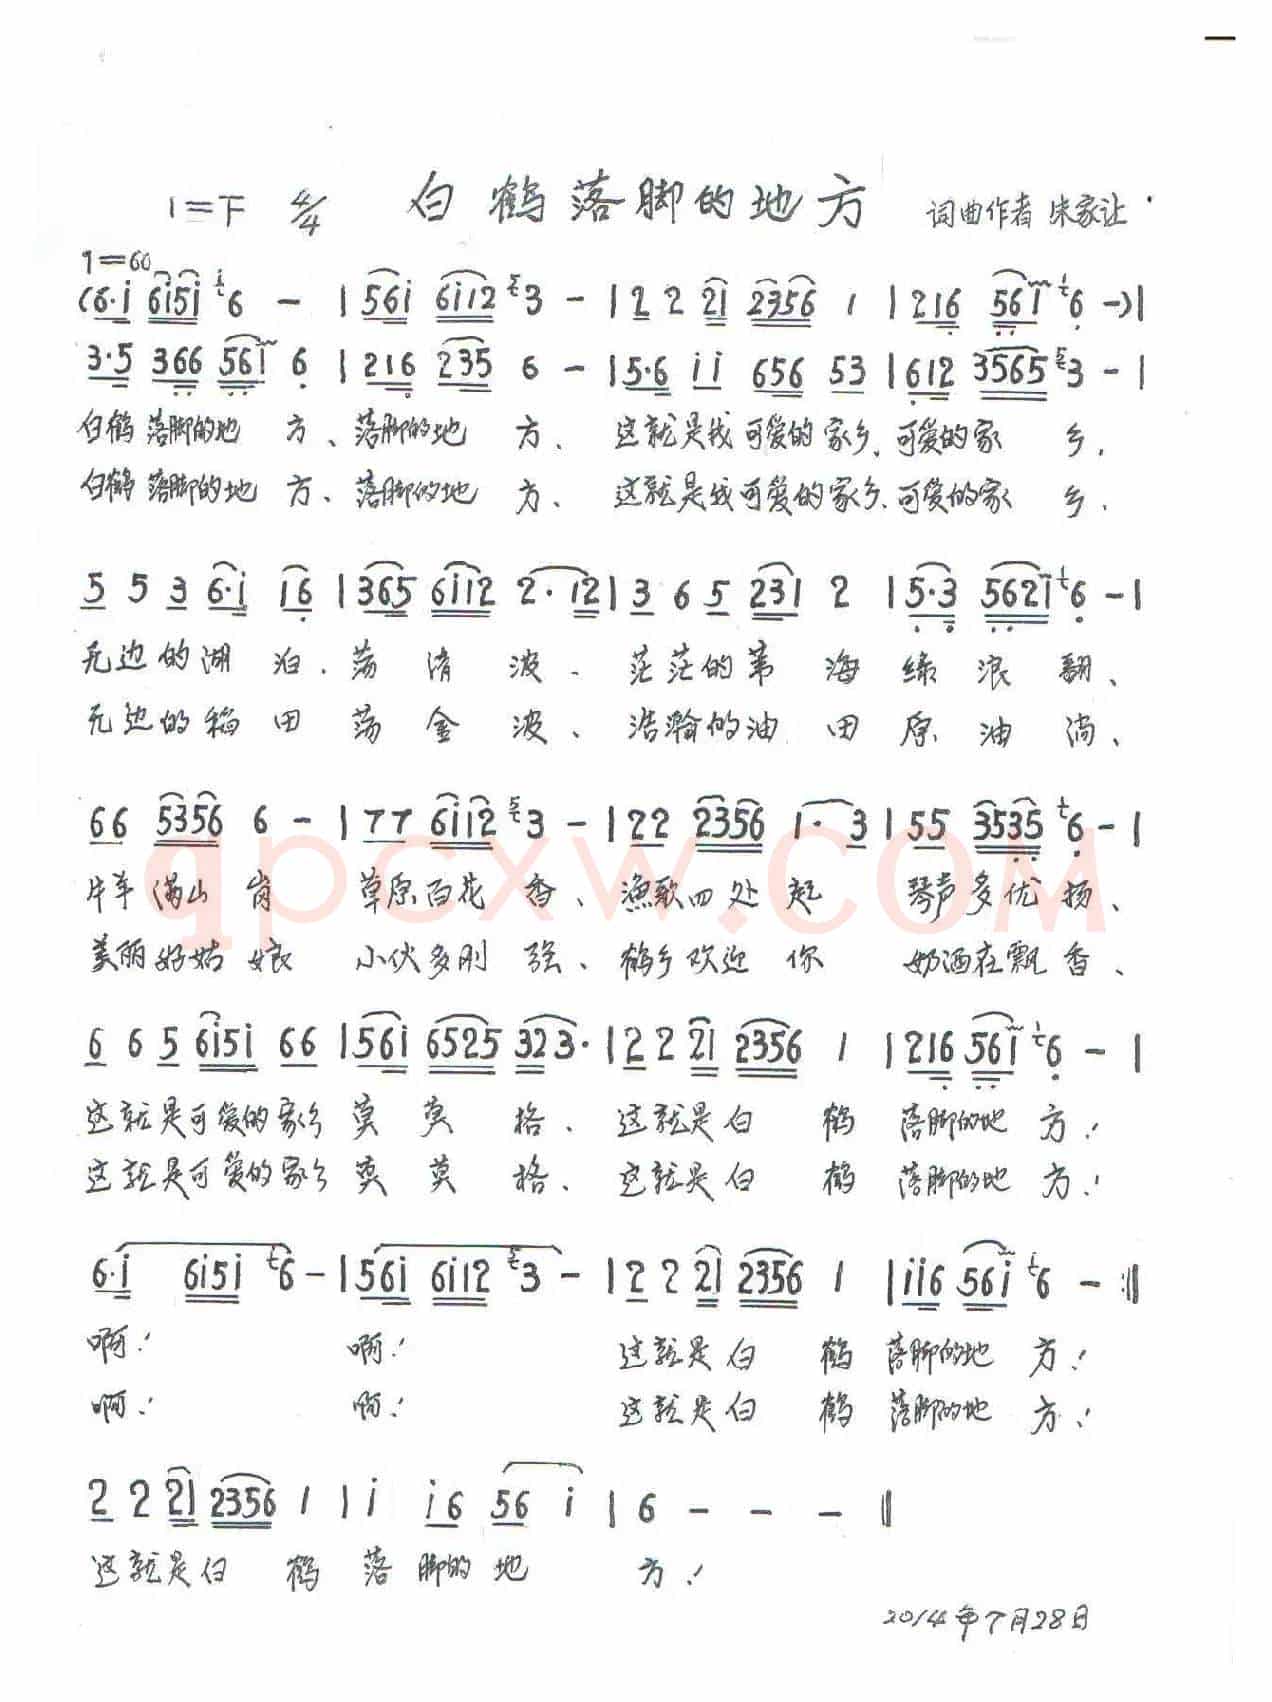 白鹤落脚的地方
1=F 4/4 词曲作者 朱家让
1=60
(6·i 6i5i 6 - | 56i 6i12 3 - | 2 2 21 2356 1 | 216 56i 6 -) |
3·5 366 56i 6 | 216 235 6 - | 5·6 ii 656 53 | 612 3565 3 - |
白鹤落脚的地 方、落脚的地 方、 这就是我可爱的家乡,可爱的家 乡,
白鹤落脚的地 方、落脚的地 方、 这就是我可爱的家乡,可爱的家 乡.
5 5 3 6·i 16 | 365 6i12 2· 12 | 3 6 5 231 2 | 5·3 5621 6 - |
无边的湖 泊. 荡 清 波、 茫茫的苇 海 绿 浪 翻、
无边的稻 田 荡 金 波、 浩瀚的油 田 原 油 淌、
66 5356 6 - | 77 6i12 3 - | 22 2356 1· 3 | 55 3535 6 - |
牛羊满山 岗 草原百花 香、渔歌四处 起 琴声多优 扬、
美丽好姑 娘 小伙多刚 强、鹤乡欢迎 你 奶酒在飘 香、
6 6 5 6i5i 66 | 56i 6525 323· | 2 2 21 2356 1 | 216 56i 6 - |
这就是可爱的家乡 莫 莫 格、 这就是白 鹤 落脚的地 方!
这就是可爱的家乡 莫 莫 格、 这就是白 鹤 落脚的地 方!
6·i 6i5i 6 - | 56i 6i12 3 - | 2 2 21 2356 1 | ii6 56i 6 - :‖
啊! 啊! 这就是白 鹤 落脚的地 方!
啊! 啊! 这就是白 鹤 落脚的地 方!
2 2 21 2356 1 | i i6 56 i | 6 - - - ‖
这就是白 鹤 落 脚的 地 方!
2014年7月28日
qpcxw.COM